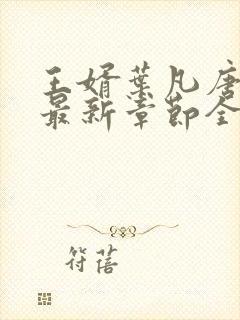 王婿叶凡唐
最新章节全
符蓓